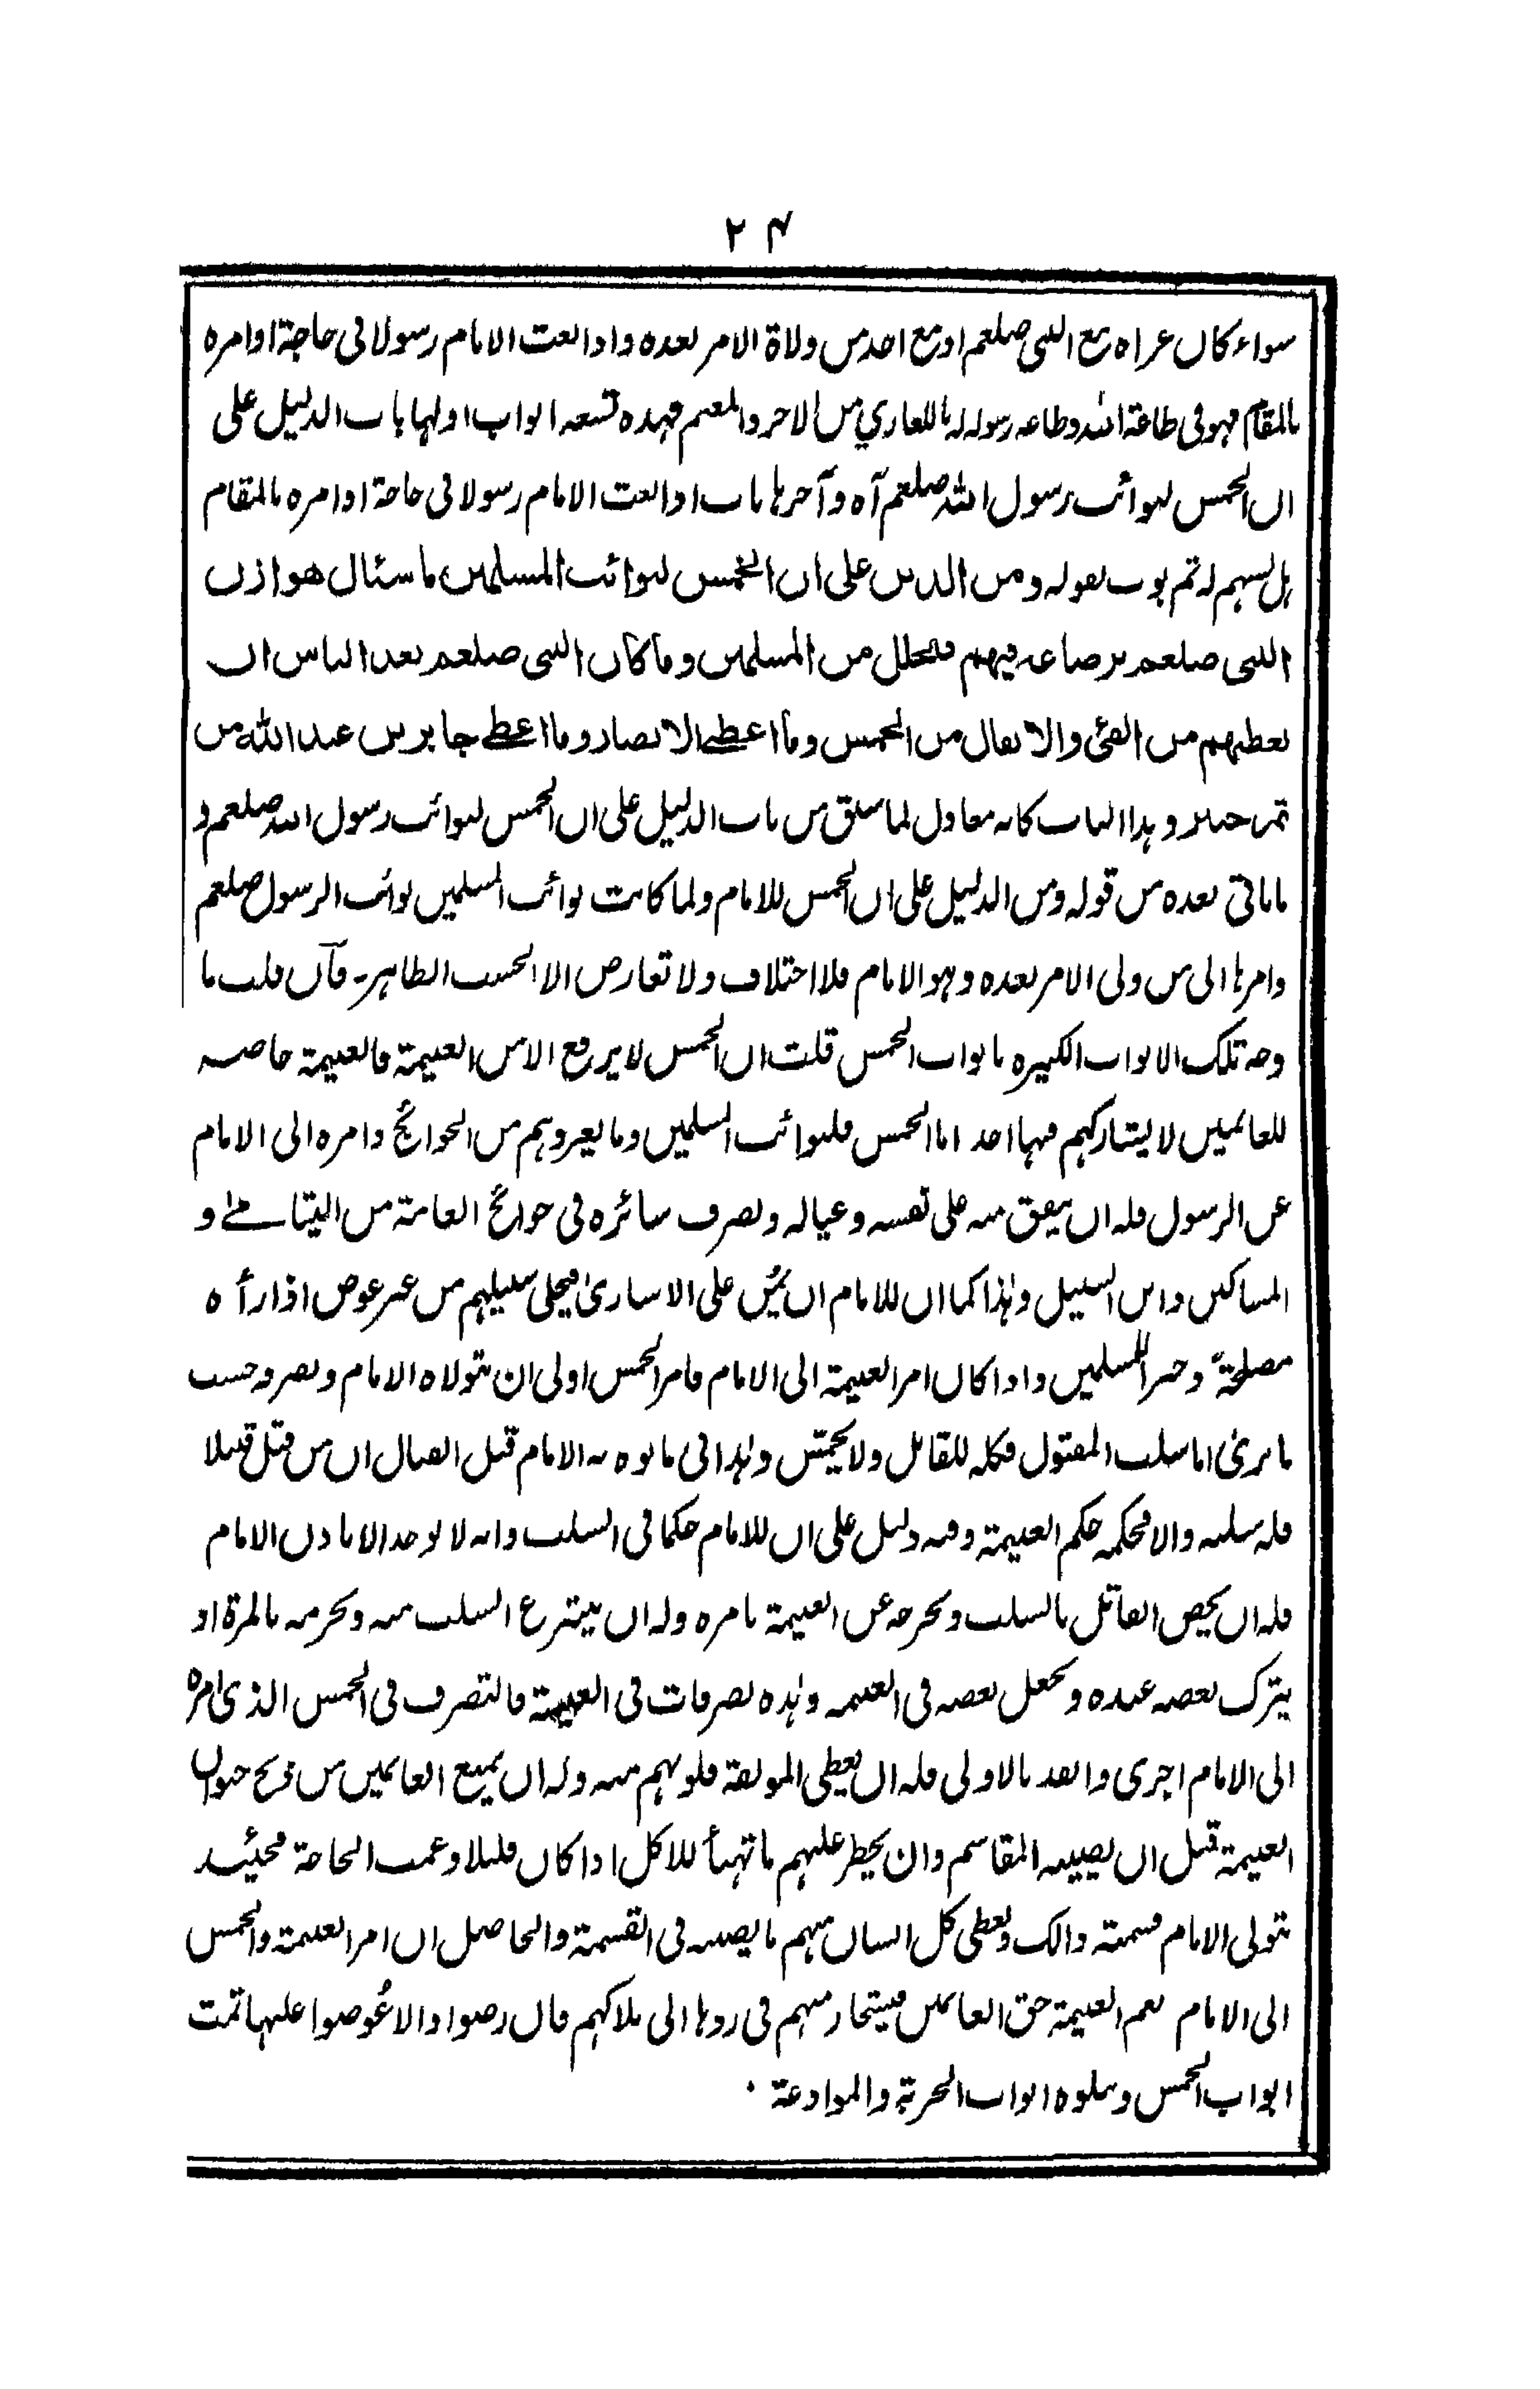 ٢٤
سواء كان غزاه مع النبى صلعم او مع احد من ولاة الامر بعده واذا بعث الامام رسولا فى حاجة او امره
بالمقام فهو فى طاعة الله وطاعة رسوله له ما للغازي من الاجر والمغنم فهذه تسعة ابواب اولها باب الدليل على
ان الخمس لنوائب رسول الله صلعم آه وآخرها باب اذا بعث الامام رسولا فى حاجة او امره بالمقام
هل يسهم له ثم بوب بقوله ومن الدليل على ان الخمس لنوائب المسلمين ما سئال هوازن
النبى صلعم برضاعه فيهم فتحلل من المسلمين وما كان النبى صلعم يعد الناس ان
يعطيهم من الفئ والانفال من الخمس وما اعطى الانصار وما اعطى جابر بن عبد الله من
تمر خيبر وهذا الباب كانه معادل لما سبق من باب الدليل على ان الخمس لنوائب رسول الله صلعم و
ما ياتى بعده من قوله ومن الدليل على ان الخمس للامام ولما كانت نوائب المسلمين نوائب الرسول صلعم
وامرها الى من ولى الامر بعده وهو الامام فلا اختلاف ولا تعارض الا بحسب الظاهر۔ فآن قلت ما
وجه تلك الابواب الكثيرة بابواب الخمس قلت ان الخمس لا يرفع الا من الغنيمة فالغنيمة خاصة
للغانمين لا يشاركهم فيها احد اما الخمس فلنوائب المسلمين وما يعروهم من الحوائج وامره الى الامام
عن الرسول فله ان ينفق منه على نفسه وعياله ويصرف سائره فى حوائج العامة من اليتامى و
المساكين وابن السبيل وهذا كما ان للامام ان يمُن على الاسارىٰ فيخلى سبيلهم من غير عوض اذا رأه
مصلحةً وخير للمسلمين واذا كان امر الغنيمة الى الامام فامر الخمس اولى ان يتولاه الامام ويصرفه حسب
ما يرىٰ اما سلب المقتول فكله للقاتل ولا يخمّس وهذا فى ما نوه به الامام قبل القتال ان من قتل قتيلا
فله سلبه والا فحكمه حكم الغنيمة وفيه دليل على ان للامام حكما فى السلب وانه لا يوخذ الا باذن الامام
فله ان يخص القاتل بالسلب ويخرجه عن الغنيمة بامره وله ان ينتزع السلب منه ويحرمه بالمرة او
يترك بعضه عنده ويجعل بعضه فى الغنيمة وهذه تصرفات فى الغنيمة فالتصرف فى الخمس الذى امره
الى الامام اجرى وانفذ بالاولى فله ان يعطى المولفة قلوبهم منه وله ان يمنع الغانمين من ذبح حيوان
الغنيمة قبل ان يصيبه المقاسم وان يحظر عليهم ما تهيأ للاكل اذا كان قليلا وعمت الحاجة فحينئذ
يتولى الامام قسمته ذالك ويعطى كل انسان منهم ما يصيبه فى القسمة والحاصل ان امر الغنيمة والخمس
الى الامام نعم الغنيمة حق الغانمين فيتخار منهم فى ردها الى ملاكهم فان رضوا والا عُوضوا عليها تمت
ابواب الخمس ويتلوه ابواب الجزية والموادعة ۰